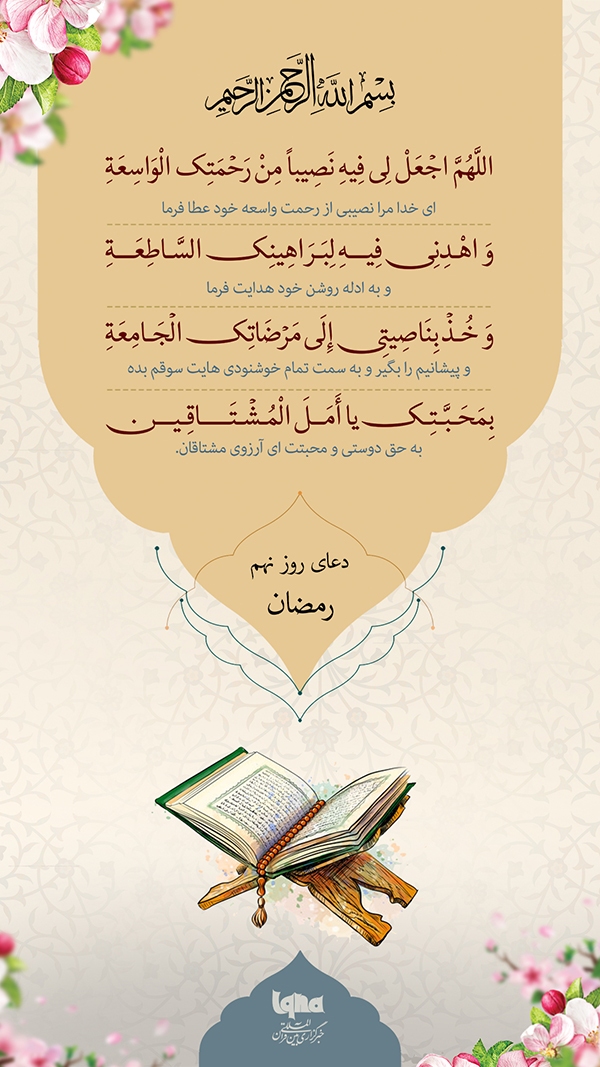 بِسْمِ اللَّهِ الرَّحْمَٰنِ الرَّحِيمِ
اللَّهُمَّ اجْعَلْ لِی فِیهِ نَصِیباً مِنْ رَحْمَتِکَ الْوَاسِعَةِ
ای خدا مرا نصیبی از رحمت واسعه خود عطا فرما
وَ اهْدِنِی فِیهِ لِبَرَاهِینِکَ السَّاطِعَةِ
و به ادله روشن خود هدایت فرما
وَ خُذْ بِنَاصِیتِی إِلَى مَرْضَاتِکَ الْجَامِعَةِ
و پیشانیم را بگیر و به سمت تمام خوشنودی هایت سوقم بده
بِمَحَبَّتِکَ یا أَمَلَ الْمُشْتَاقِینَ
به حق دوستی و محبتت ای آرزوی مشتاقان.
دعای روز نهم
رمضان
iqna
خبرگزاری بین المللی قرآن